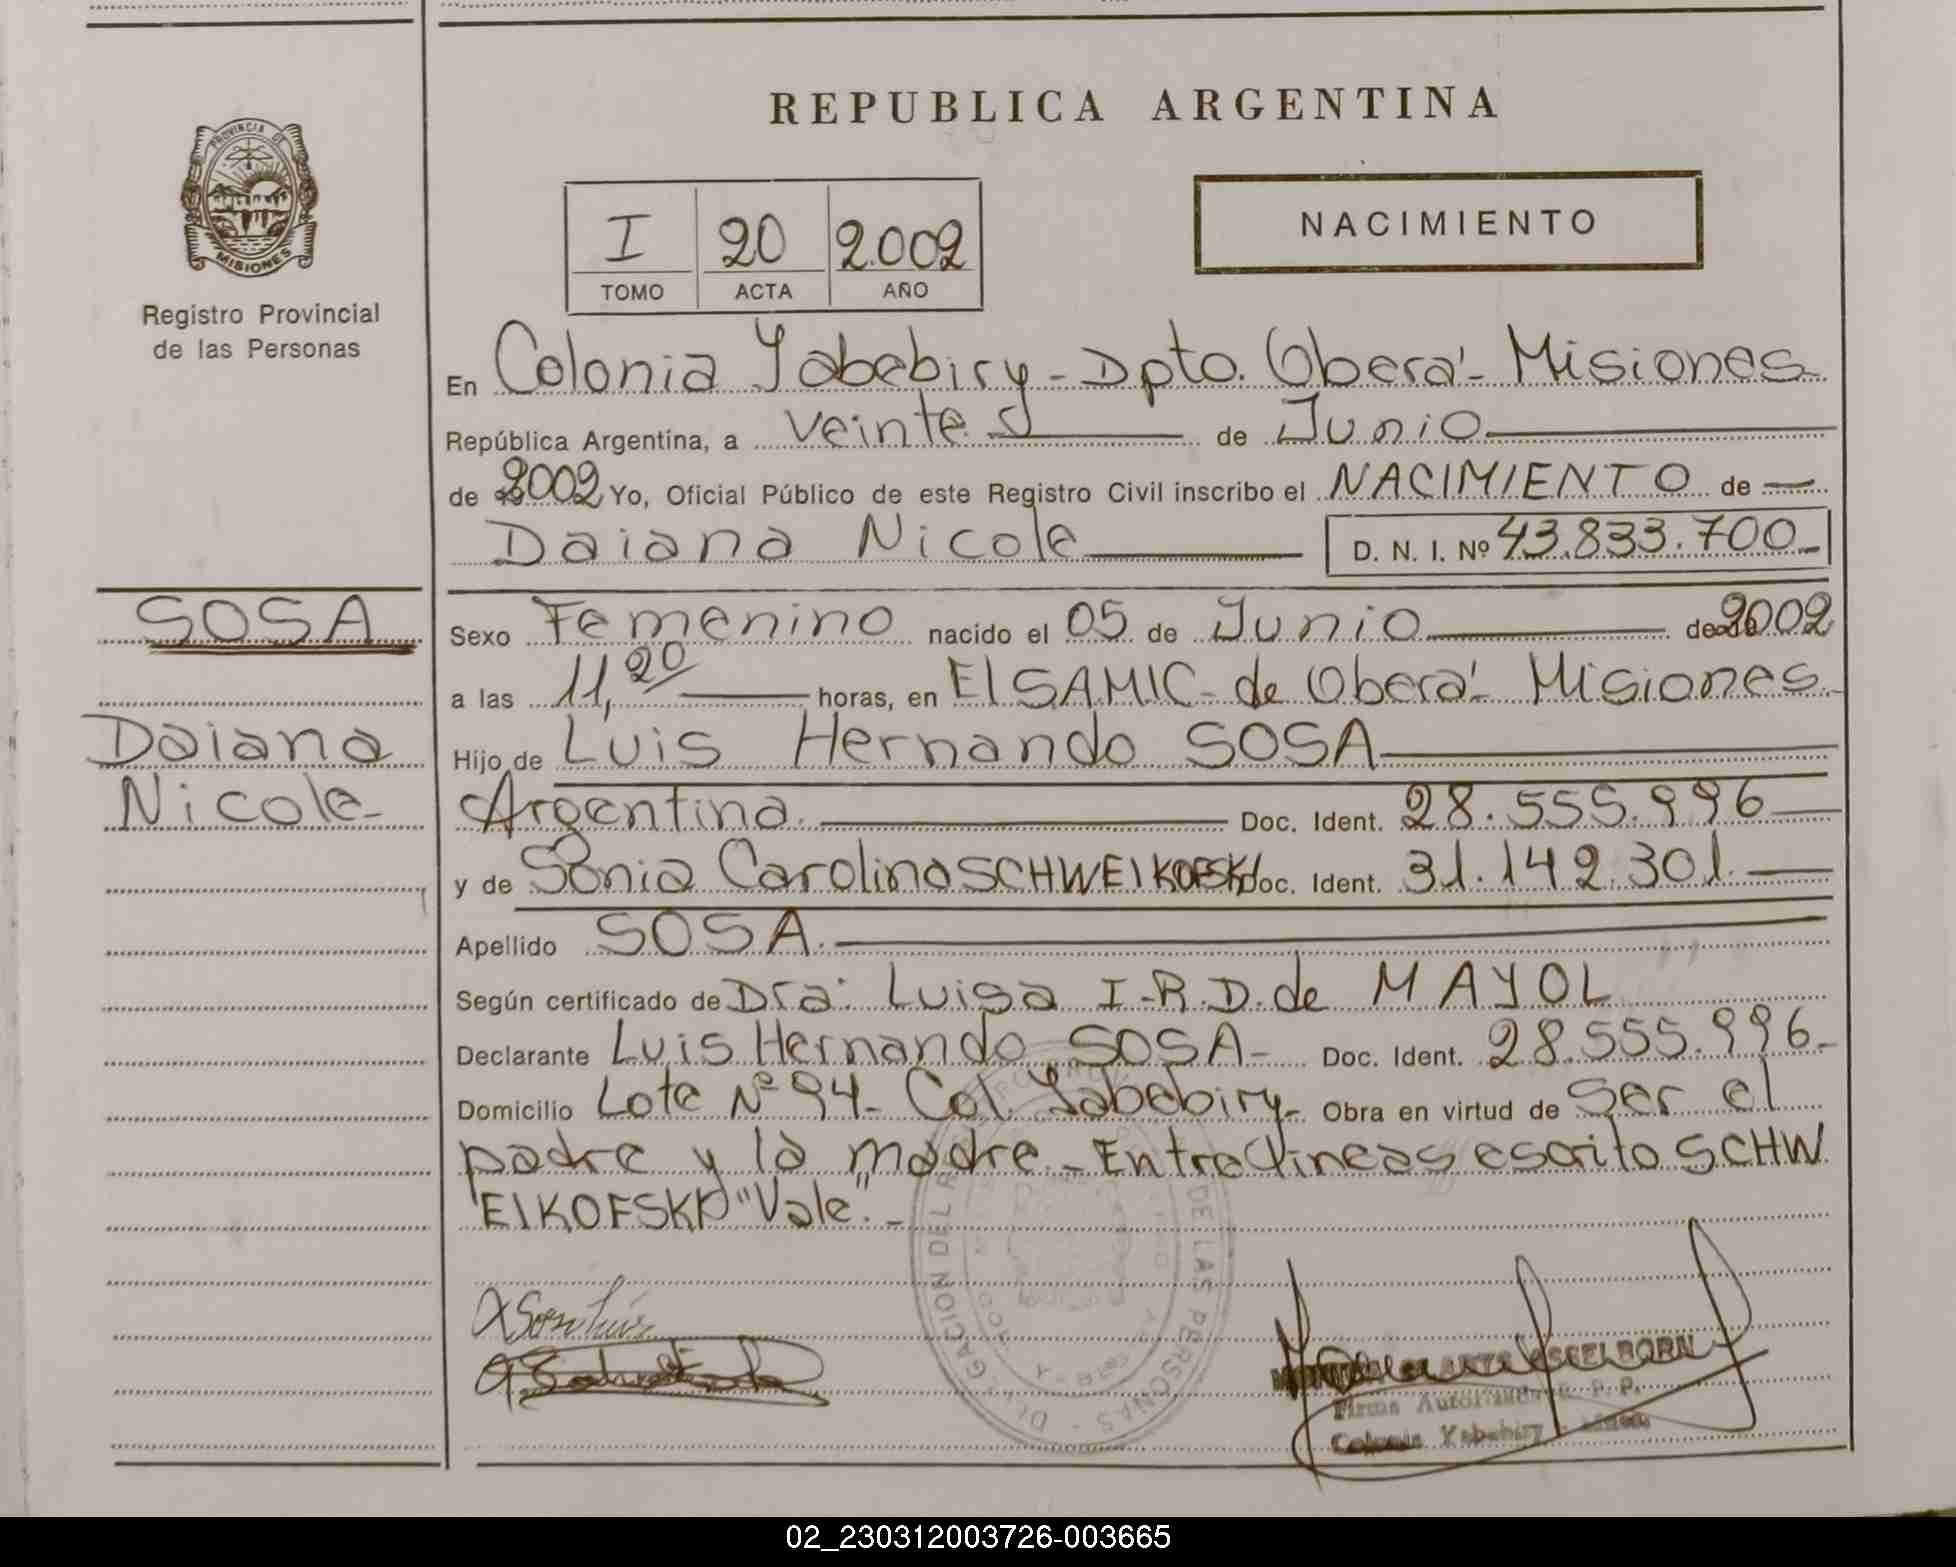 REPUBLICA ARGENTINA
PROVINCIA DE
MISIONES
Registro Provincial
de las Personas
NACIMIENTO
I 20 2.002
TOMO ACTA AÑO
En Colonia Yabebiry - Dpto. Oberá - Misiones
República Argentina, a veinte de Junio
de 2002 Yo, Oficial Público de este Registro Civil inscribo el NACIMIENTO de
Daiana Nicole D. N. I. Nº 43.833.700
SOSA
Daiana
Nicole
Sexo Femenino nacido el 05 de Junio de 2002
a las 11,20 horas, en El SAMIC - de Oberá - Misiones
Hijo de Luis Hernando SOSA
Argentina. Doc. Ident. 28.555.996
y de Sonia Carolina SCHWEIKOFSKI Doc. Ident. 31.142.301
Apellido SOSA
Según certificado de Dra. Luisa I.R.D. de MAYOL
Declarante Luis Hernando SOSA - Doc. Ident. 28.555.996
Domicilio Lote Nº 94 - Col. Yabebiry - Obra en virtud de Ser el
padre y la madre - Entrelineas escrito SCHW
EIKOFSKI "Vale".-
DELEGACION DEL R DE LAS PERSONAS
Firma Autorizada R. P. P.
Colonia Yabebiry - Mnes
02_230312003726-003665